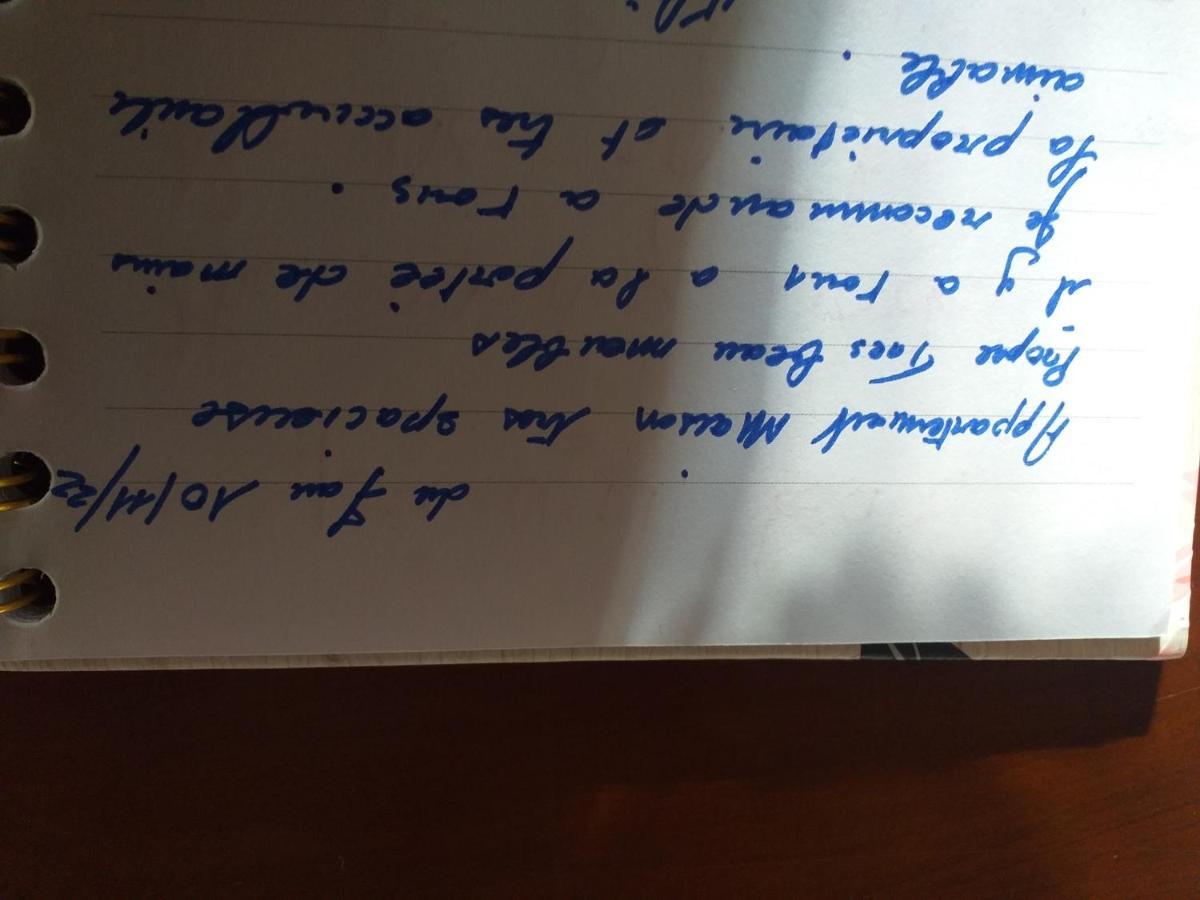 du Jau 10/11/22
Appartement Maison tres spacieuse
Propre Tres beau meubles
il y a tous a la porteé de mains
Je recommande a tous.
La proprietaire et tres accueillante
aimable.